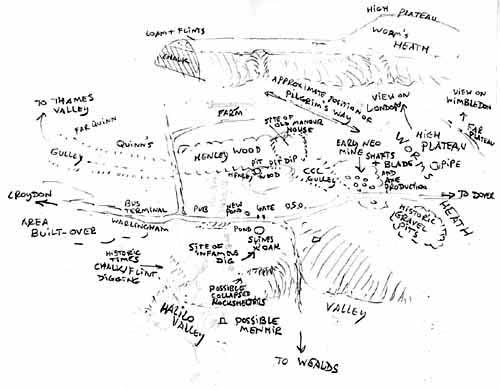 HIGH PLATEAU
LOAM + FLINTS
WORM'S
HEATH
CHALK
APPROXIMATE POSITION OR
PILGRIM'S WAY
TO THAMES
VALLEY
FARM
SITE OF
OLD MANOUR
HOUSE
VIEW ON
LONDON
VIEW ON
WIMBLEDON
FAR QUINN
QUINN'S
GULLEY
HENLEY WOOD
PIT DIP DIP
HENLEY WOOD
CCC
GULLEY
EARLY NEO
MINE
SHAFTS
+ BLADE
AND
AXE
PRODUCTION
HIGH
PLATEAU
PIPE
FAR
PLATEAU
WORMS
HEATH
TO DOVER
CROYDON
BUS
TERMINAL
WARLINGHAM
PUB
NEW
POND
GATE
O.S.O.
POND
AREA
BUILT-OVER
HISTORIC
GRAVEL
PITS
HISTORIC
TIMES
CHALK/FLINT
DIGGING
SITE OF
INFAMOUS
DIG
OAK
POSSIBLE
COLLAPSED
ROCKSHELTERS
VALLEY
VALLEY
POSSIBLE
MENHIR
TO WEALDS